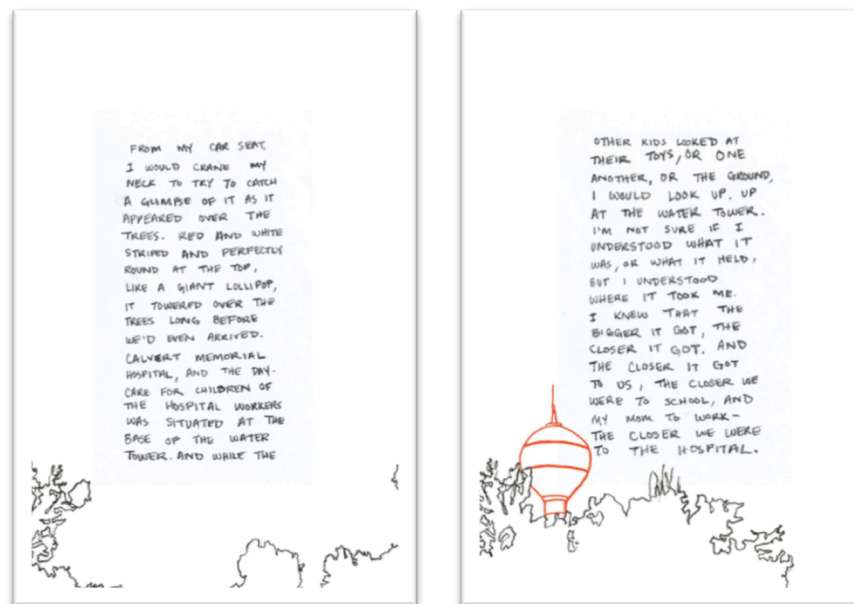 FROM MY CAR SEAT,
I WOULD CRANE MY
NECK TO TRY TO CATCH
A GLIMPSE OF IT AS IT
APPEARED OVER THE
TREES. RED AND WHITE
STRIPED AND PERFECTLY
ROUND AT THE TOP,
LIKE A GIANT LOLLIPOP,
IT TOWERED OVER THE
TREES LONG BEFORE
WE'D EVEN ARRIVED.
CALVERT MEMORIAL
HOSPITAL, AND THE DAY-
CARE FOR CHILDREN OF
THE HOSPITAL WORKERS
WAS SITUATED AT THE
BASE OF THE WATER
TOWER. AND WHILE THE
OTHER KIDS LOOKED AT
THEIR TOYS, OR ONE
ANOTHER, OR THE GROUND,
I WOULD LOOK UP. UP
AT THE WATER TOWER.
I'M NOT SURE IF I
UNDERSTOOD WHAT IT
WAS, OR WHAT IT HELD,
BUT I UNDERSTOOD
WHERE IT TOOK ME.
I KNEW THAT THE
BIGGER IT GOT, THE
CLOSER IT GOT. AND
THE CLOSER IT GOT
TO US, THE CLOSER WE
WERE TO SCHOOL, AND
MY MOM TO WORK—
THE CLOSER WE WERE
TO THE HOSPITAL.